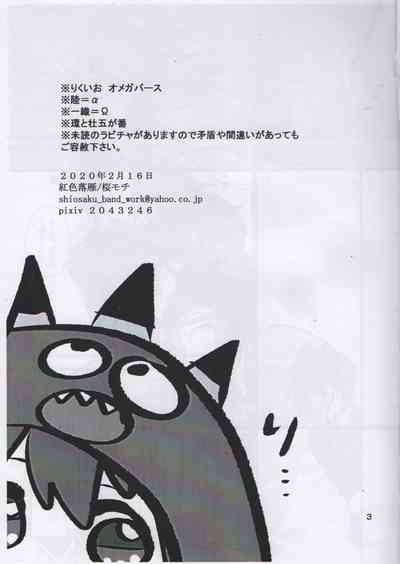 ※りくいお オメガバース
※陸=α
※一織=Ω
※環と壮五が番
※未読のラビチャがありますので矛盾や間違いがあっても
ご容赦下さい。
2020年2月16日
紅色落雁/桜モチ
shiosaku_band_work@yahoo.co.jp
pixiv 2043246
り…
3